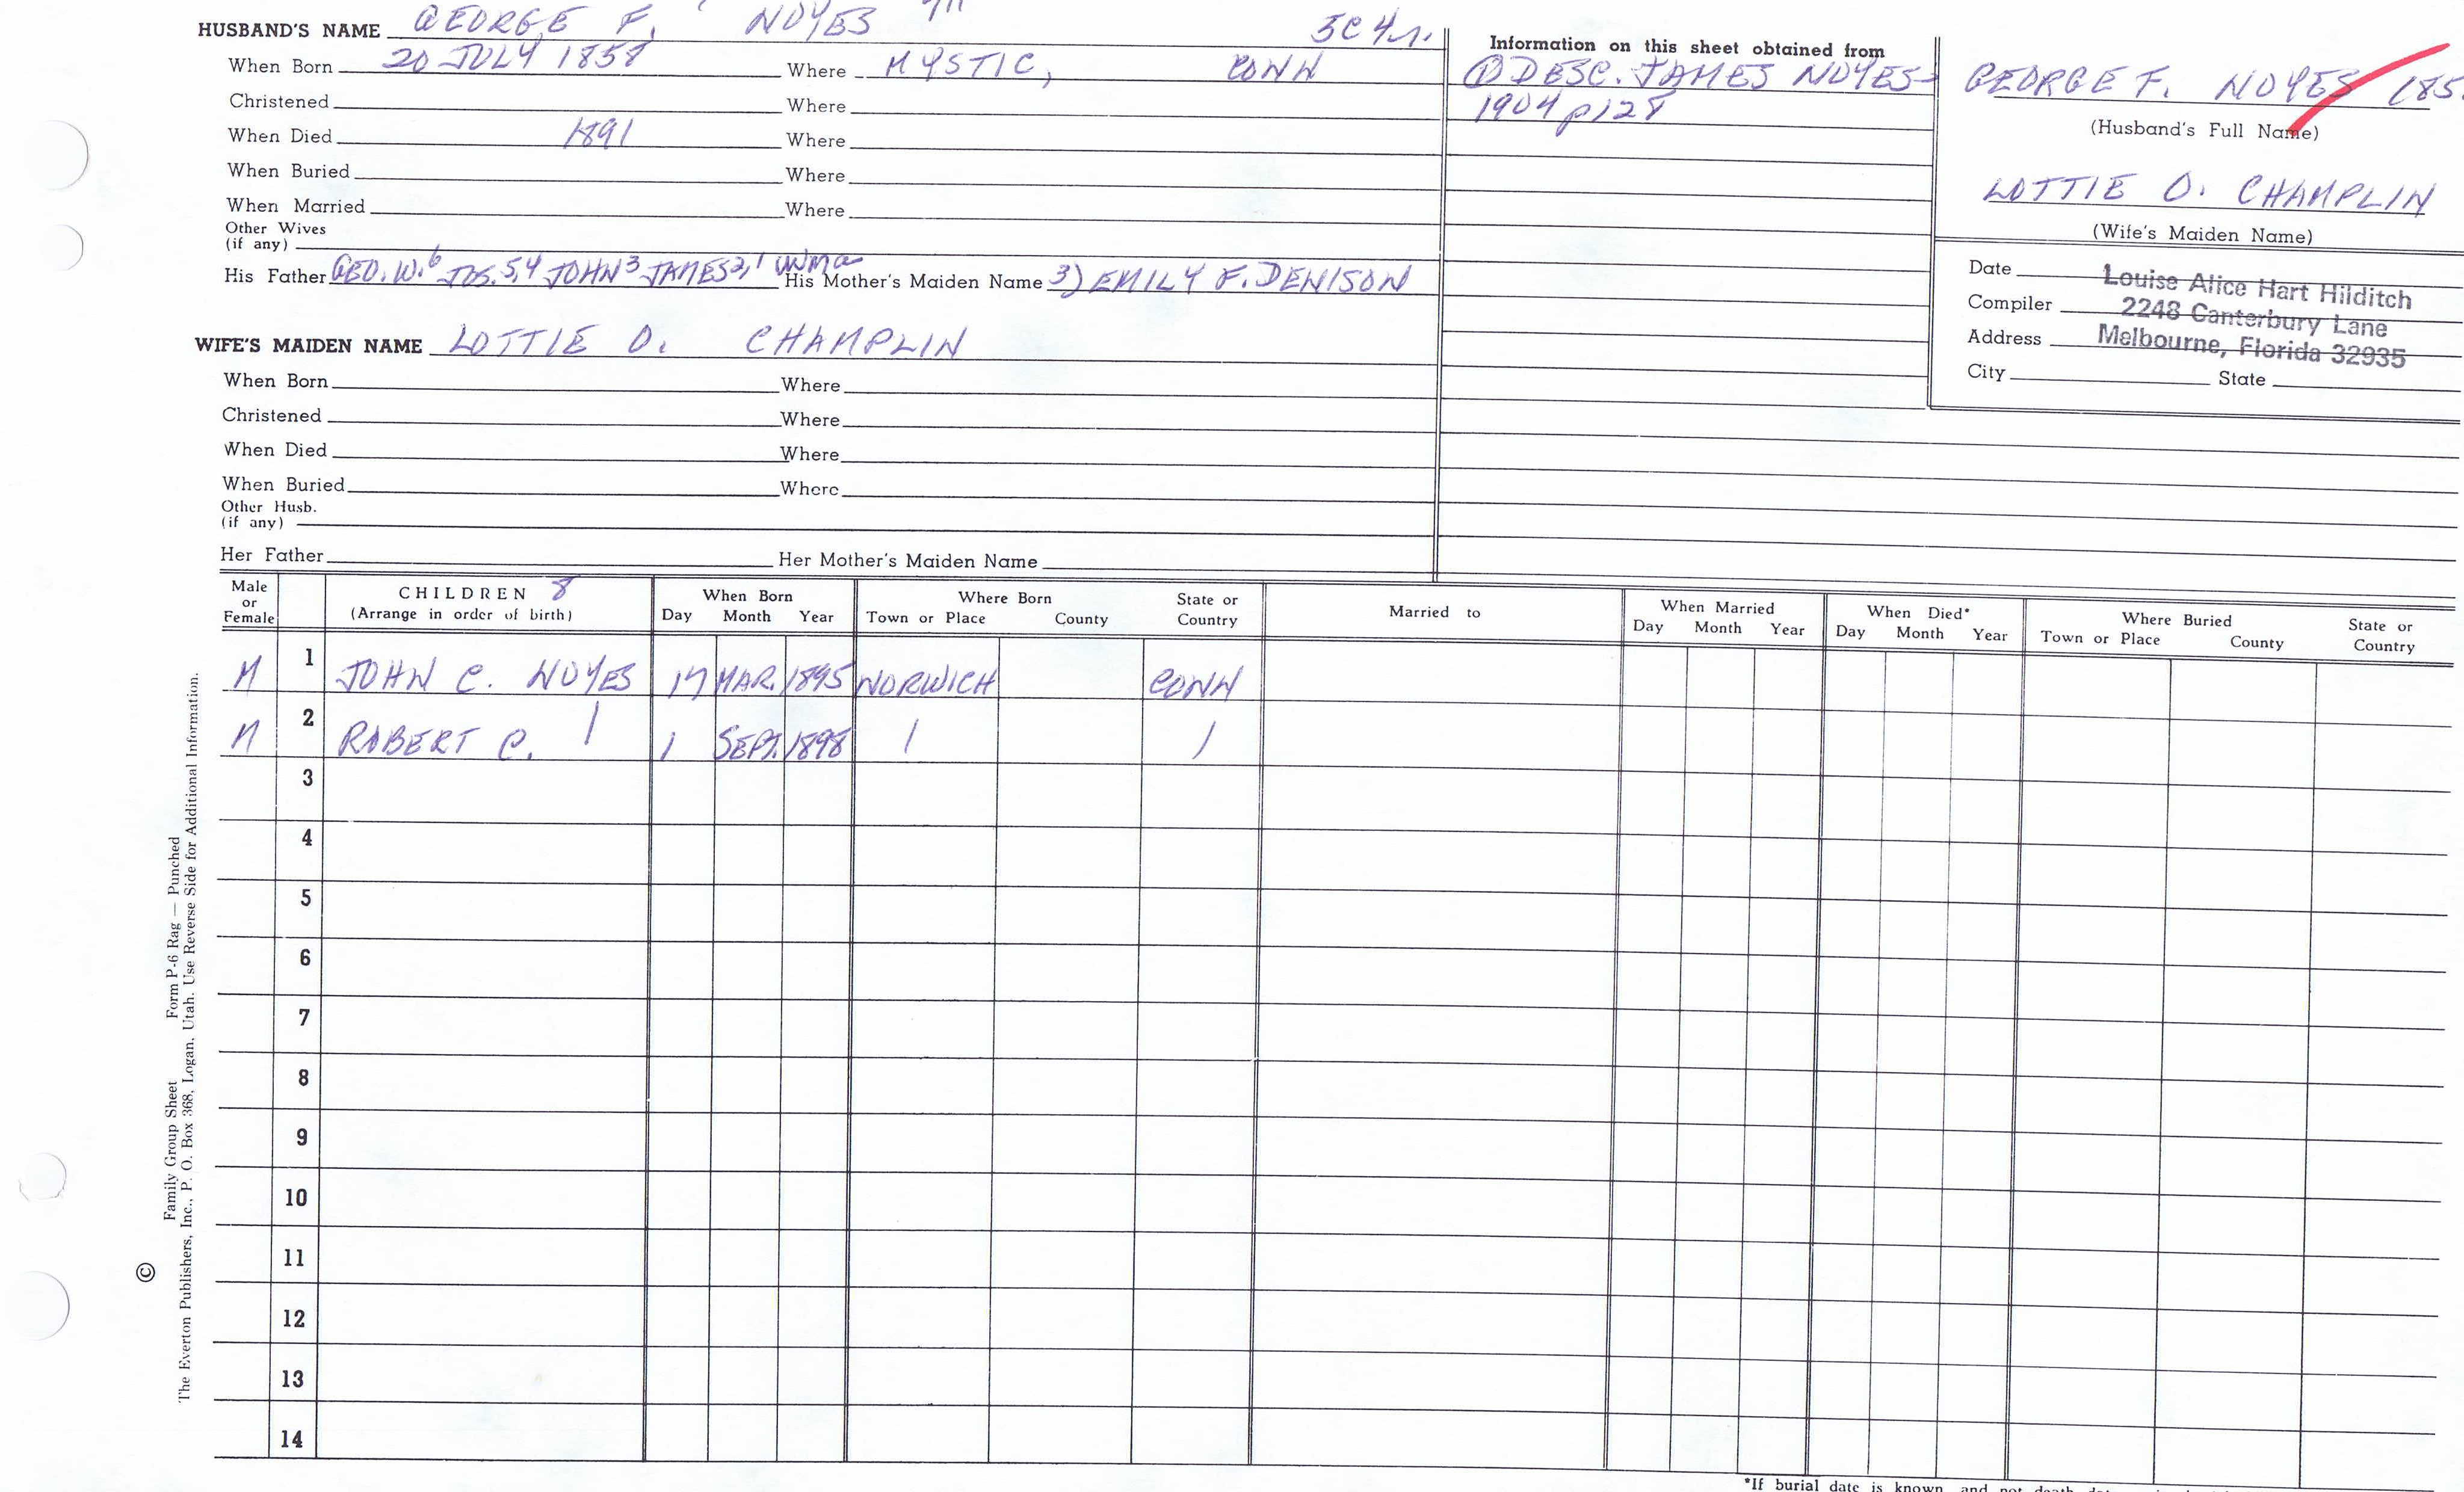 HUSBAND'S NAME GEORGE F. NOYES 7th 5C 4r.
When Born 20 JULY 1858 Where MYSTIC, CONN
Christened Where
When Died 1891 Where
When Buried Where
When Married Where
Other Wives
(if any)
His Father GEO. W.6 JOS.5,4 JOHN3 JAMES2,1 WMa His Mother's Maiden Name 3) EMILY F. DENISON
WIFE'S MAIDEN NAME LOTTIE O. CHAMPLIN
When Born Where
Christened Where
When Died Where
When Buried Where
Other Husb.
(if any)
Her Father Her Mother's Maiden Name
Information on this sheet obtained from
① DESC. JAMES NOYES-
1904 p128
GEORGE F. NOYES 185
(Husband's Full Name)
LOTTIE O. CHAMPLIN
(Wife's Maiden Name)
Date Louise Alice Hart Hilditch
Compiler 2248 Canterbury Lane
Address Melbourne, Florida 32935
City State
Male or Female CHILDREN 8 (Arrange in order of birth) When Born Day Month Year Where Born Town or Place County State or Country Married to When Married Day Month Year When Died* Day Month Year Where Buried Town or Place County State or Country
M 1 JOHN C. NOYES 17 MAR. 1895 NORWICH CONN
M 2 ROBERT C. 1 SEPT. 1898
3
4
5
6
7
8
9
10
11
12
13
14
© Family Group Sheet Form P-6 Rag — Punched
The Everton Publishers, Inc., P. O. Box 368, Logan, Utah. Use Reverse Side for Additional Information.
*If burial date is known and not death